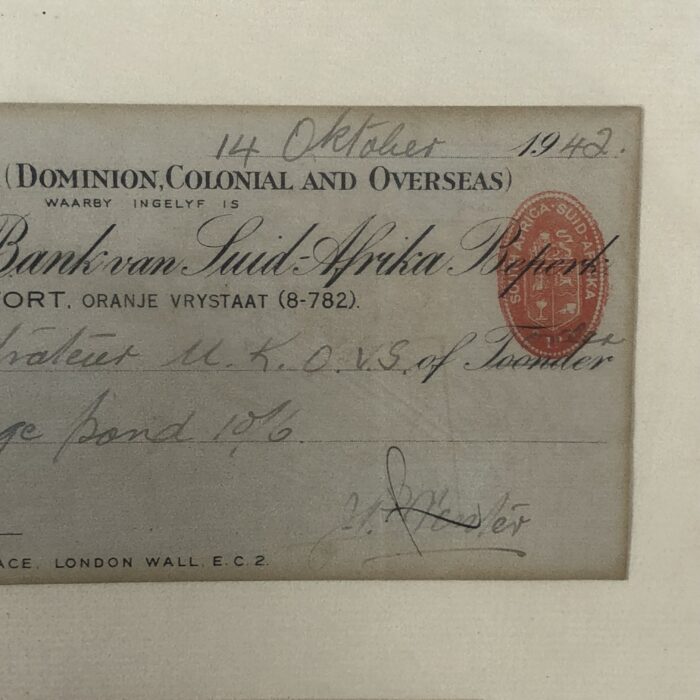 14 Oktober 1942.
(DOMINION, COLONIAL AND OVERSEAS)
WAARBY INGELYF IS
Bank van Suid-Afrika Beperk
SUID-AFRIKA
FORT, ORANJE VRYSTAAT (8-782).
U. K. O.V.S. of Toonder
pond 10/6
ACE, LONDON WALL, E.C.2.